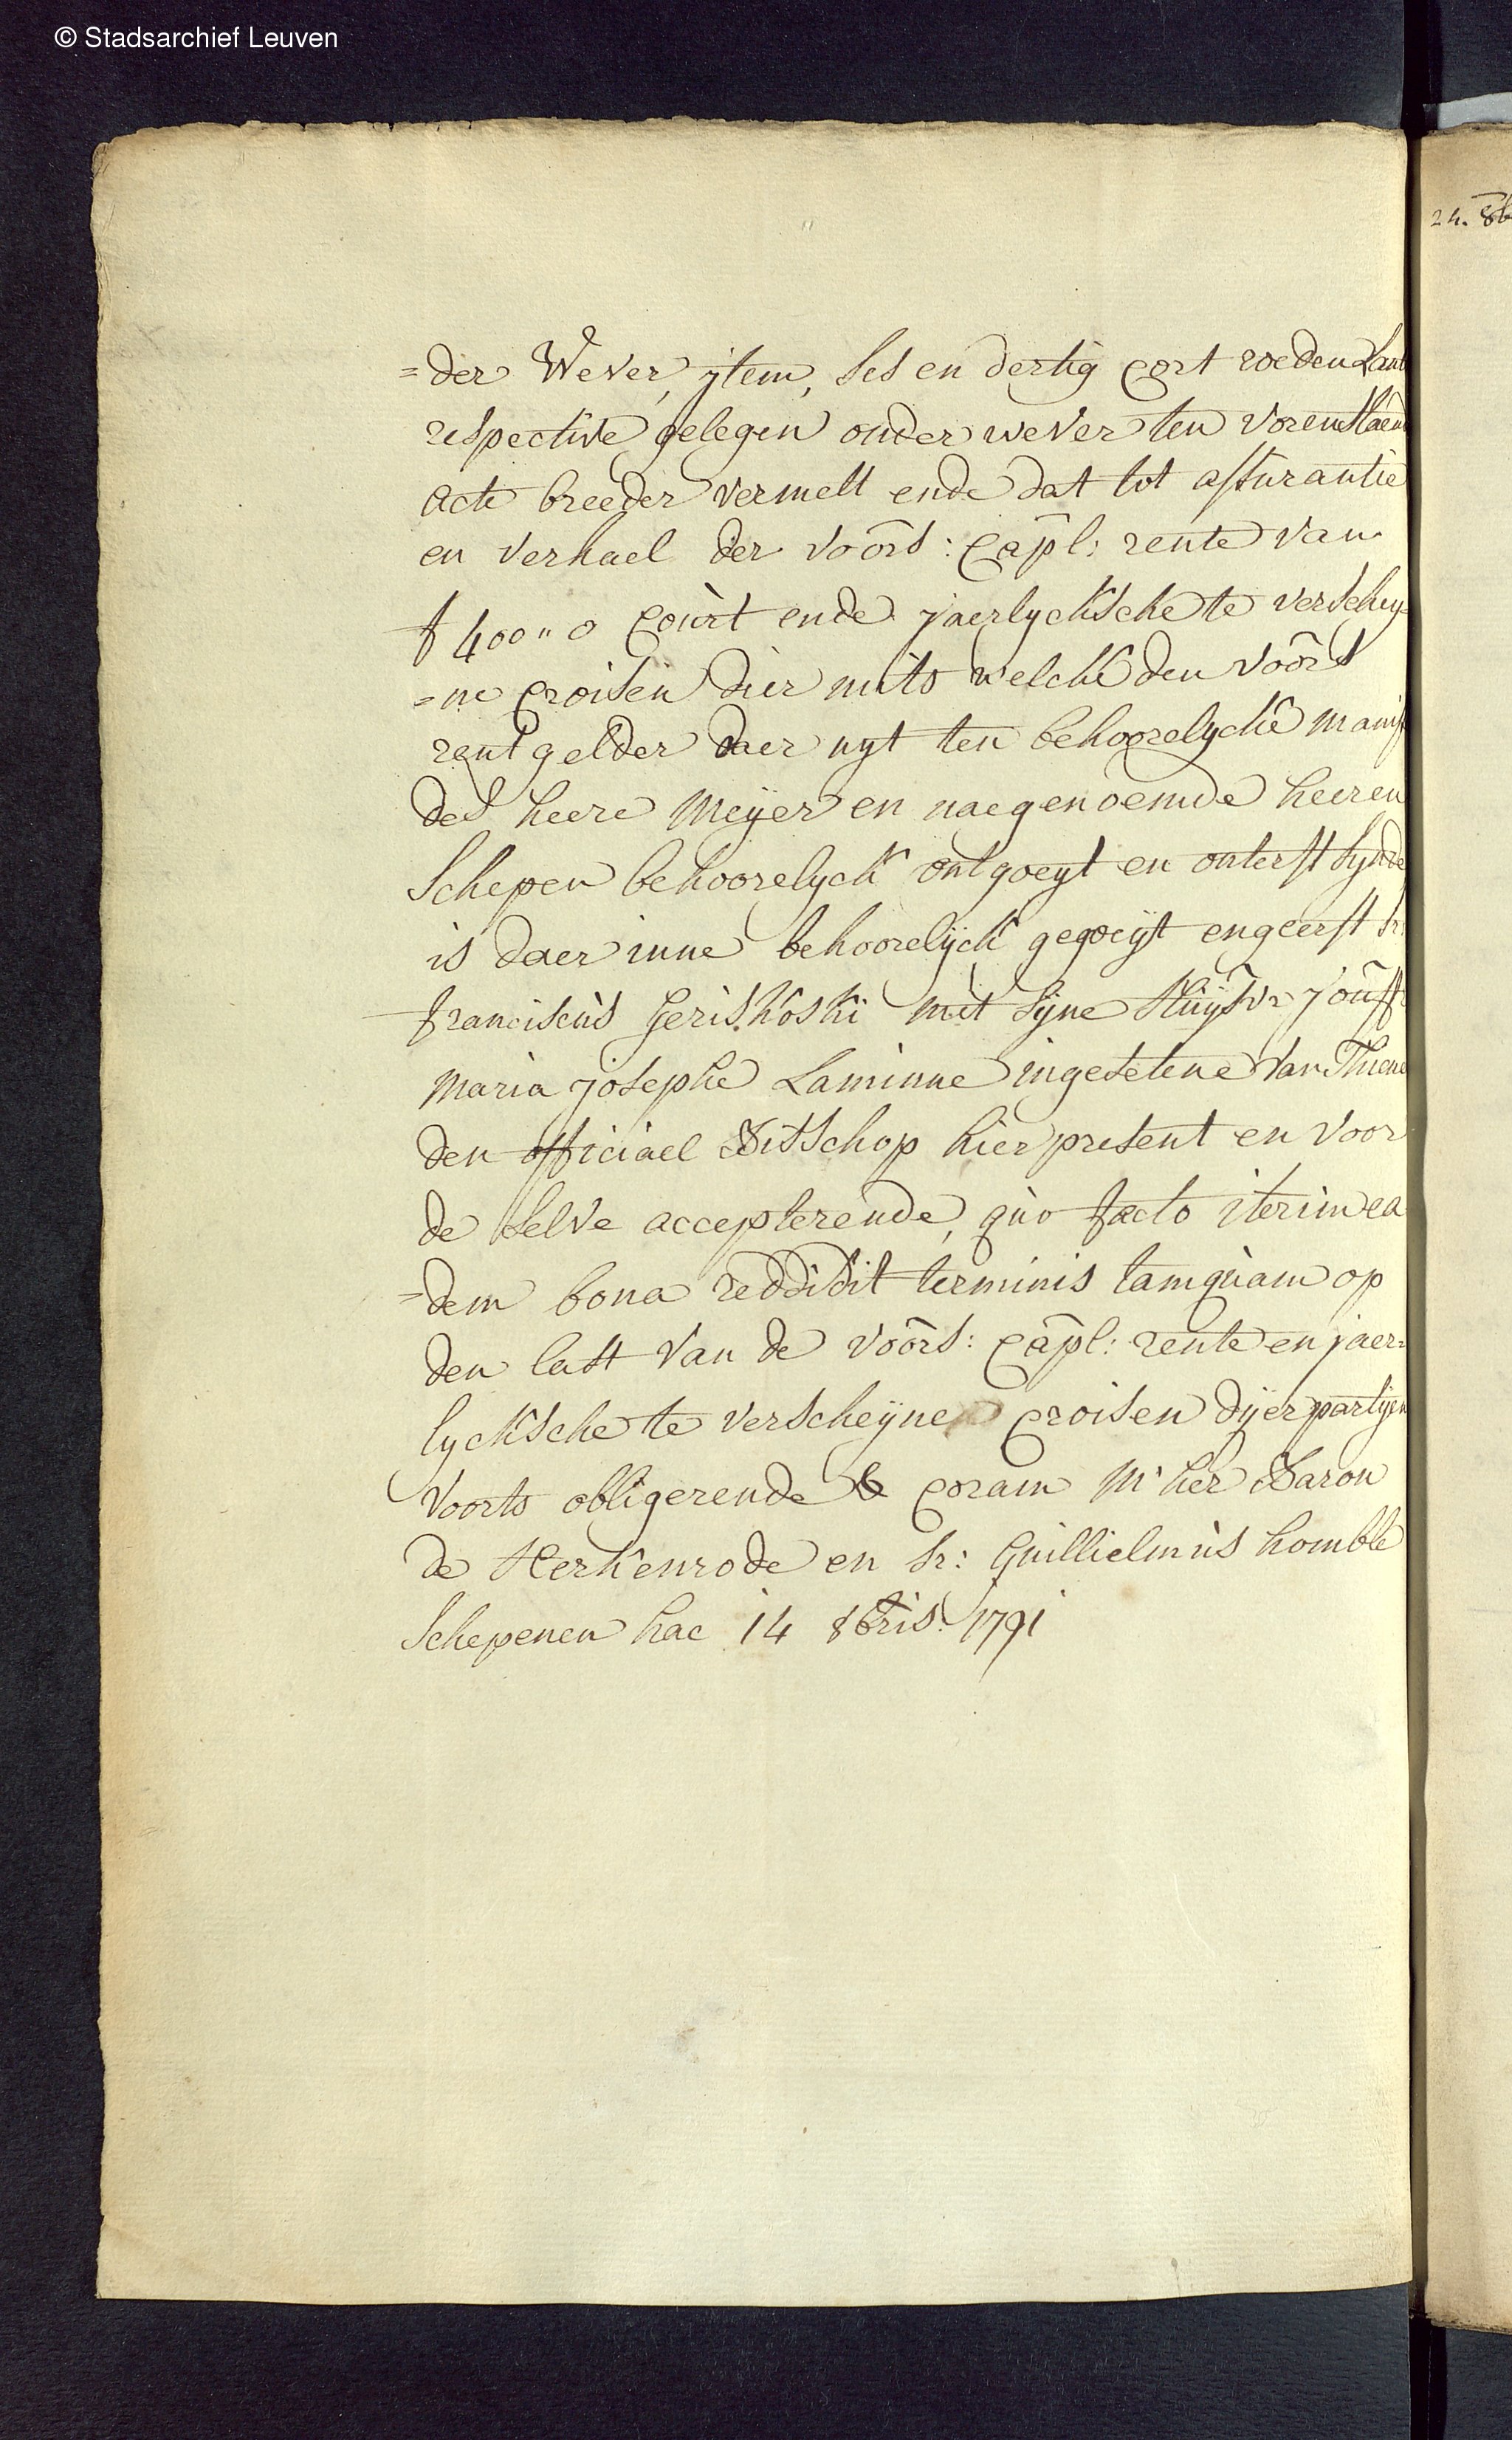 © Stadsarchief Leuven
24. 8b
=der Wever, ijtem, ses en dertig cort roeden Lant
respective gelegen onder wever ten vorenstaend
acte breeder vermelt ende dat tot assurantie
en verhael der voors: capl: rente van
f 400 " 0 court ende jaerlycksche te verschey=
=ne croisen dier mits welcke den voors
rentgelder daer uyt ten behoorelycke manis
des heere Meijer en naegenoemde heeren
Schepen behoorelyck ontgoeyt en onterft synde
is daer inne behoorelijck gegoeijt en geerft sr:
franciscus Geriskoski met sijne Huijsvr jouff
Maria josephe Laminne ingesetene van Thiene
den officiael Bitschop hier present en voor
de selve accepterende, quo facto iterim ea
=dem bona reddidit terminis tamquam op
den last van de voors: capl: rente en jaer=
lycksche te verscheijne croisen dijer partijen
Voorts obligerende & coram M'her Baron
de Herkenrode en sr: Guillielmus homble
Schepenen hac 14 8bris: 1791